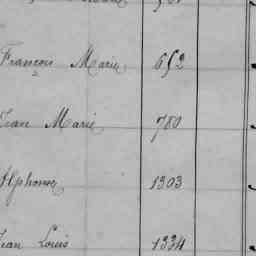 François Marie 652
Jean Marie 780
Alphonse 1303
Jean Louis 1334